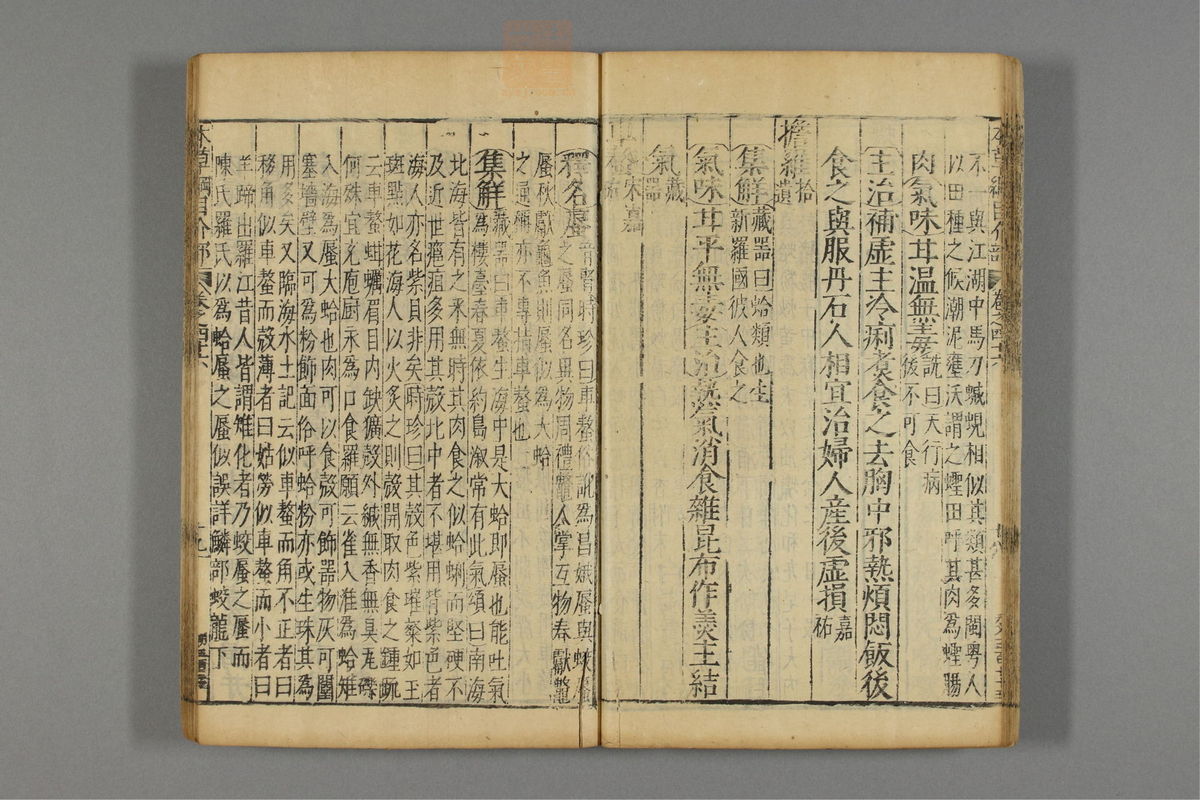 不一與江湖中馬刀蝛蜆相似其類甚多閩粤人
以田種之候潮泥壅沃謂之蟶田呼其肉為蟶腸
肉氣味甘温無毒詵曰天行病後不可食
主治補虛主冷痢煮食之去胸中邪熱煩悶飯後
食之與服丹石人相宜治婦人產後虛損嘉祐
擔羅拾遺
集解藏器曰蛤類也生新羅國彼人食之
氣味甘平無毒主治熱氣消食雜昆布作羹主結
氣藏器
宋嘉
釋名蜃音腎時珍曰車螯俗訛為昌娥蜃與蛟
蜃之蜃同名異物周禮鼈人掌互物春獻鼈
蜃秋獻龜魚則蜃似為大蛤
之通稱亦不專指車螯也
集解藏器曰車螯生海中是大蛤即蜃也能吐氣
為樓臺春夏依約島溆常有此氣頌曰南海
北海皆有之采無時其肉食之似蛤蜊而堅硬不
及近世癰疽多用其殼北中者不堪用背紫色者
海人亦名紫貝非矣時珍曰其殼色紫璀粲如玉
斑點如花海人以火炙之則殼開取肉食之鍾㽸
云車螯蚶蠣眉目内缺獷殼外緘無香無臭瓦礫
何殊宜充庖厨永為口食羅願云雀入淮為蛤雉
入海為蜃大蛤也肉可以食殼可飾器物灰可闉
塞牆壁又可為粉飾面俗呼蛤粉亦或生珠其為
用多矣又臨海水土記云似車螯而角不正者曰
移角似車螯而殼薄者曰姑勞似車螯而小者曰
羊蹄出羅江昔人皆謂雉化者乃蛟蜃之蜃而
陳氏羅氏以為蛤蜃之蜃似誤詳鱗部蛟龍下
本草綱目介部 卷之四十六